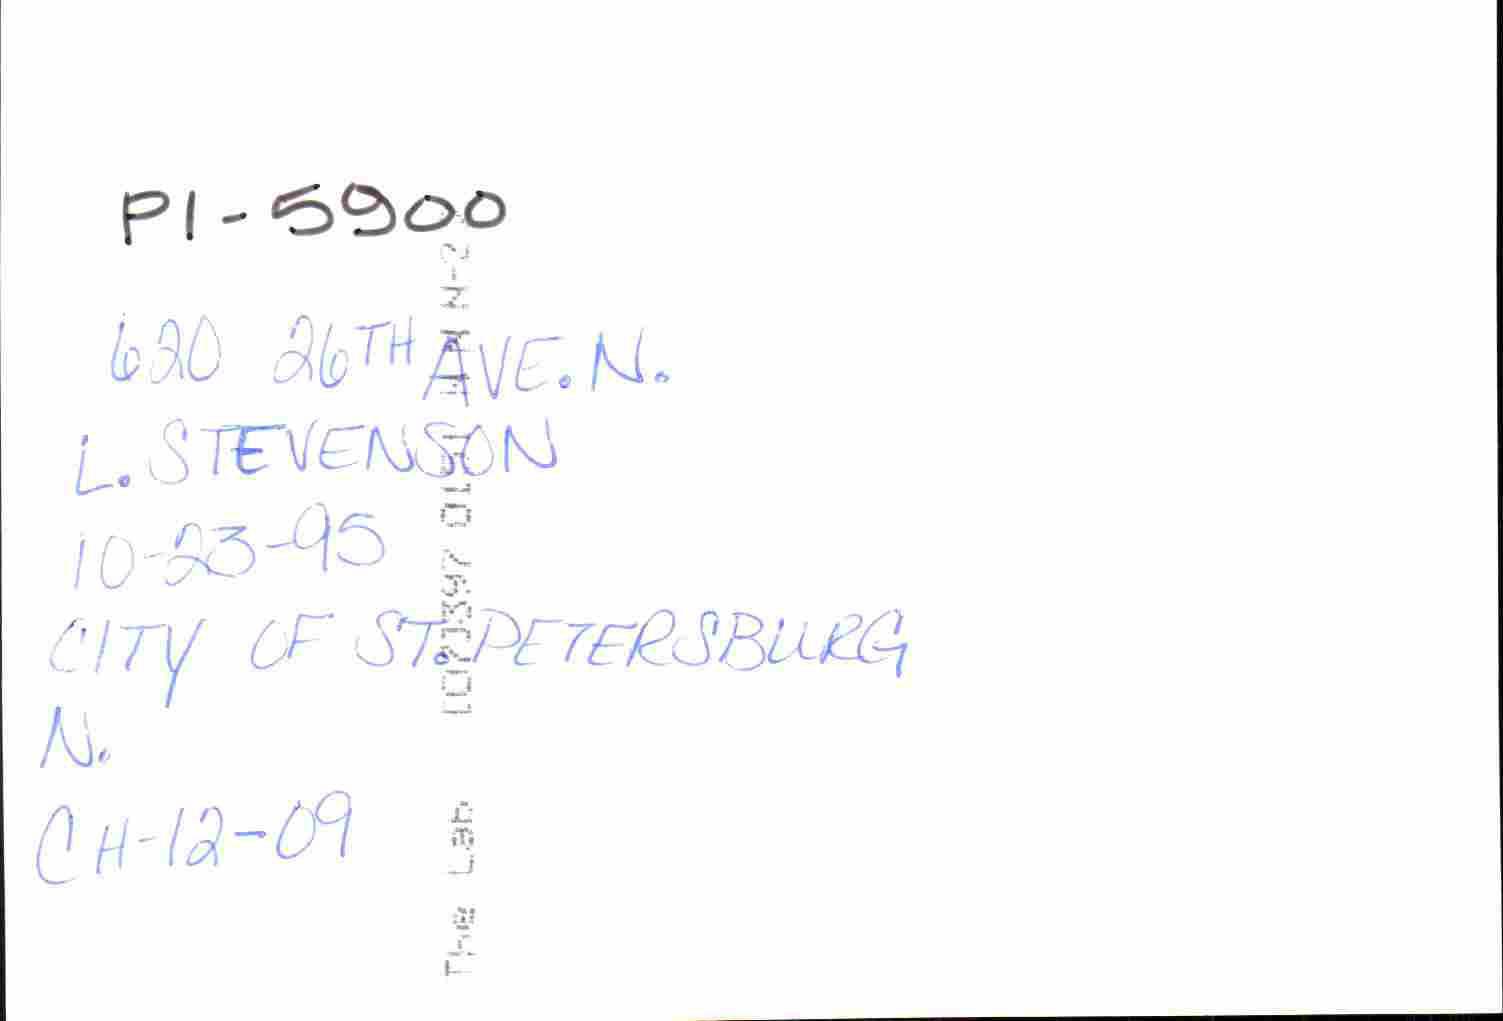 PI-5900
620 26TH AVE. N.
L. STEVENSON
10-23-95
CITY OF ST. PETERSBURG
N.
CH-12-09
The Lab